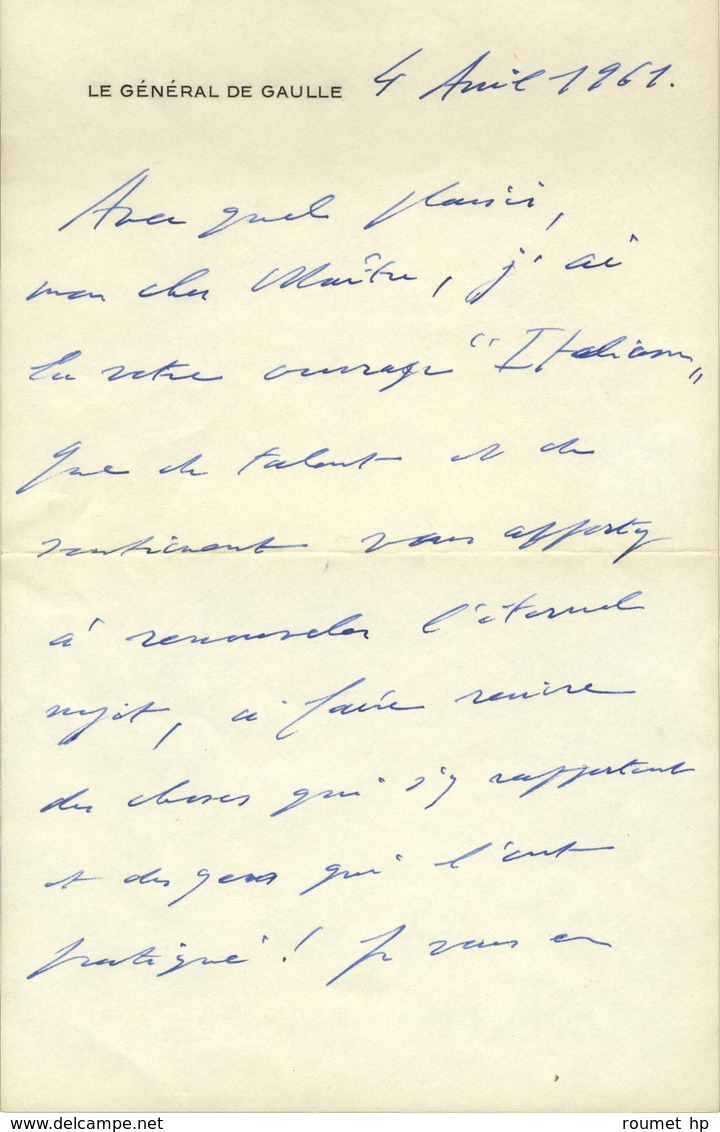 LE GÉNÉRAL DE GAULLE 4 Avril 1961.
Avec quel plaisir,
mon cher Maître, j'ai
lu votre ouvrage "Italiam"
Que de talent et de
sentiment vous apportez
à renouveler l'éternel
sujet, à faire revivre
des choses qui s'y rapportent
et des gens qui l'ont
pratiqué! Je vous en
www.delcampe.net roumet hp